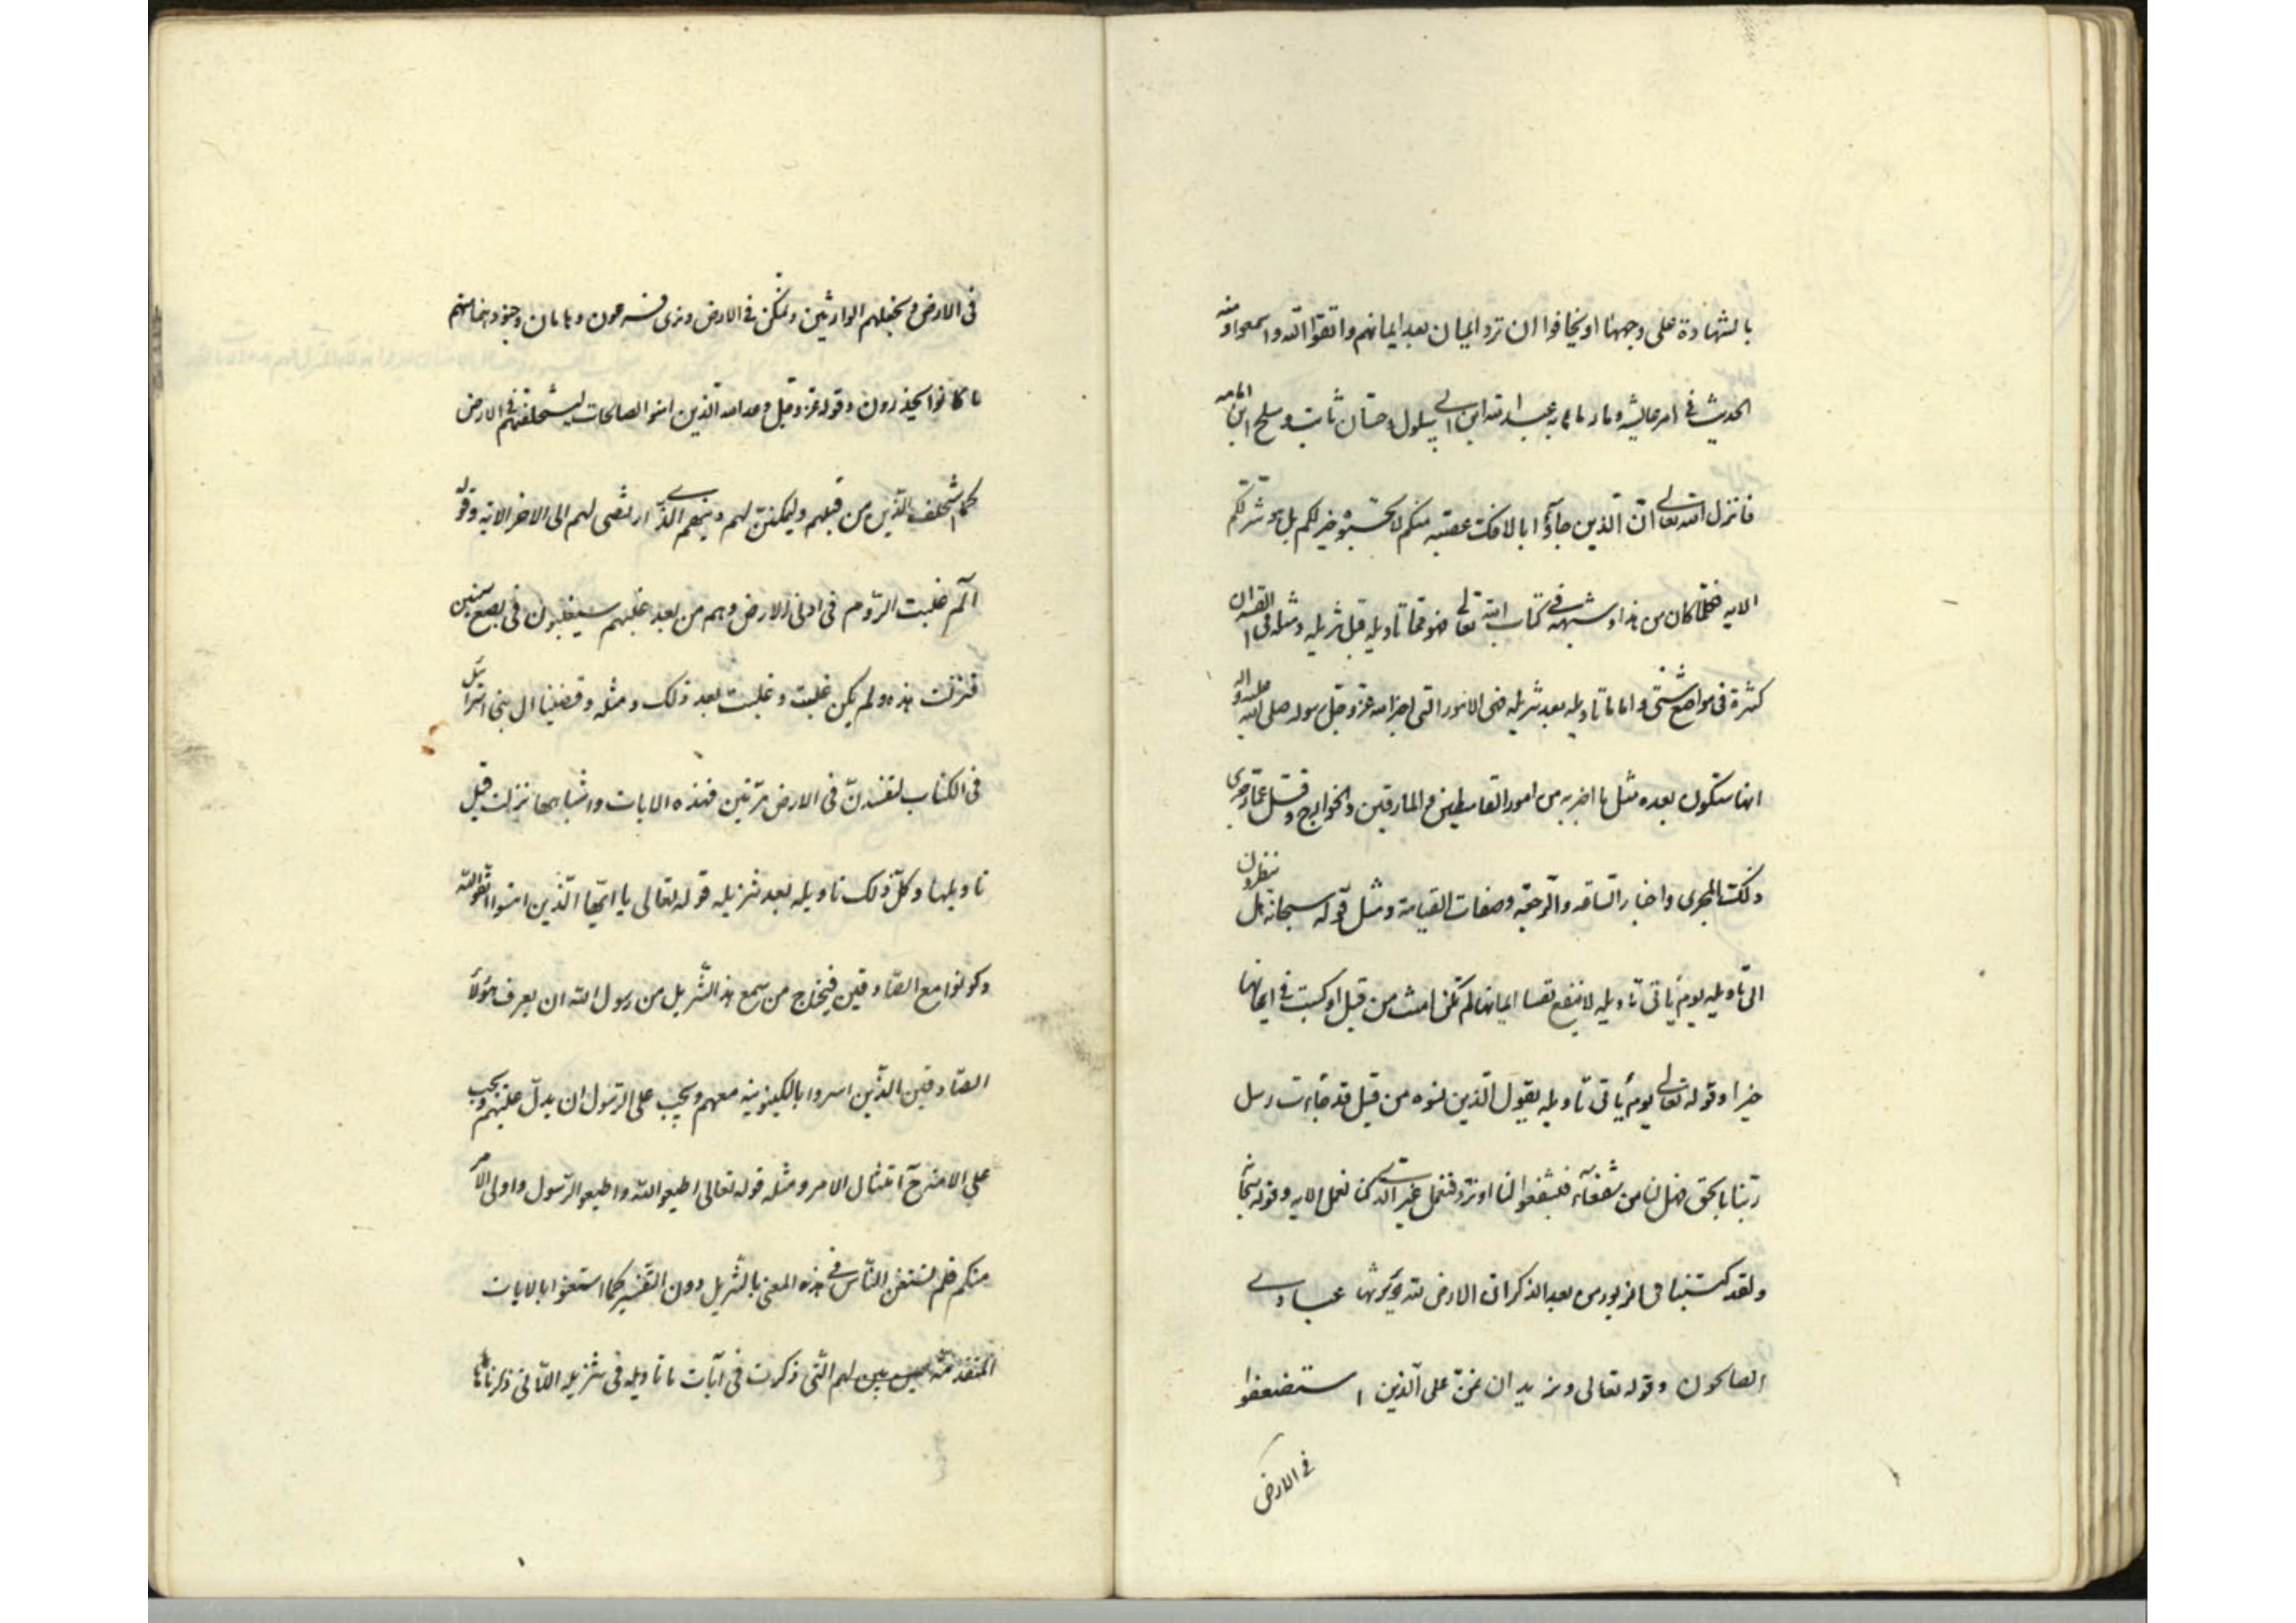 بالشهادة على وجهها او يخافوا ان ترد ايمان بعد ايمانهم واتقوا الله واسمعوا ومنه
الحديث في امر عايشة وما رماها به عبد الله ابن ابي سلول وحسان ثابت ومسلح ابن اثامه
فانزل الله تعالى ان الذين جاؤا بالافك عصبة منكم لا تحسبوه خير لكم بل هو شر لكم
الايه فكلما كان من هذا وشبهه في كتاب الله تعالى فهو مما تاويله قبل تنزيله ومثله في القران
كثيرة في مواضع شتى واما ما تاويله بعد تنزيله فهى الامور التى اخبر الله عز وجل رسوله صلى الله عليه واله
انها ستكون بعده مثل ما اخبر به من امور القاسطين والمارقين والخوارج وقتل عمار جرى
ذلك المجرى واخبار الساعه والرجعة وصفات القيامة ومثل قوله سبحانه هل ينظرون
الى تاويله يوم ياتى تاويله لا ينفع نفسا ايمانها لم تكن امنت من قبل او كسبت في ايمانها
خيرا وقوله تعالى يوم ياتى تاويله يقول الذين نسوه من قبل قد جاءت رسل
ربنا بالحق فهل لنا من شفعاء فيشفعوا لنا او نرد فنعمل غير الذى كنا نعمل الايه وقوله سبحانه
ولقد كتبنا فى الزبور من بعد الذكر ان الارض لله يورثها عبادي
الصالحون وقوله تعالى ونريد ان نمن على الذين استضعفوا
في الارض
فى الارض ونجعلهم الوارثين ونمكن فى الارض ونرى فرعون وهامان وجنودهما منهم
ما كانوا يحذرون وقوله عز وجل وعد الله الذين امنوا الصالحات ليستخلفنهم في الارض
كما استخلف الذين من قبلهم وليمكنن لهم دينهم الذي ارتضى لهم الى الاخر الاية وقوله
الم غلبت الروم فى ادنى الارض وهم من بعد غلبهم سيغلبون فى بضع سنين
فنزلت هذه ولم يكن غلبت وغلبت بعد ذلك ومثله وقضينا ال بنى اسرائيل
فى الكتاب لتفسدن فى الارض مرتين فهذه الايات واشباهها نزلت قبل
تاويلها وكل ذلك تاويله بعد تنزيله قوله تعالى يا ايها الذين امنوا اتقوا الله
وكونوا مع الصادقين فيحتاج من سمع هذا التنزيل من رسول الله ان يعرف هؤلاء
الصادقين الذين امروا بالكينونية معهم ويجب على الرسول ان يدل عليهم ويجب
على الامة ح امتثال الامر ومثله قوله تعالى اطيعوا الله واطيعوا الرسول واولى الامر
منكم فلم يستغن الناس في هذه المعنى بالتنزيل دون التفسير كما استغنوا بالايات
المتقدمة لهم التى ذكرت فى آيات ما تاويله فى تنزيله اللاتى ذكرناها